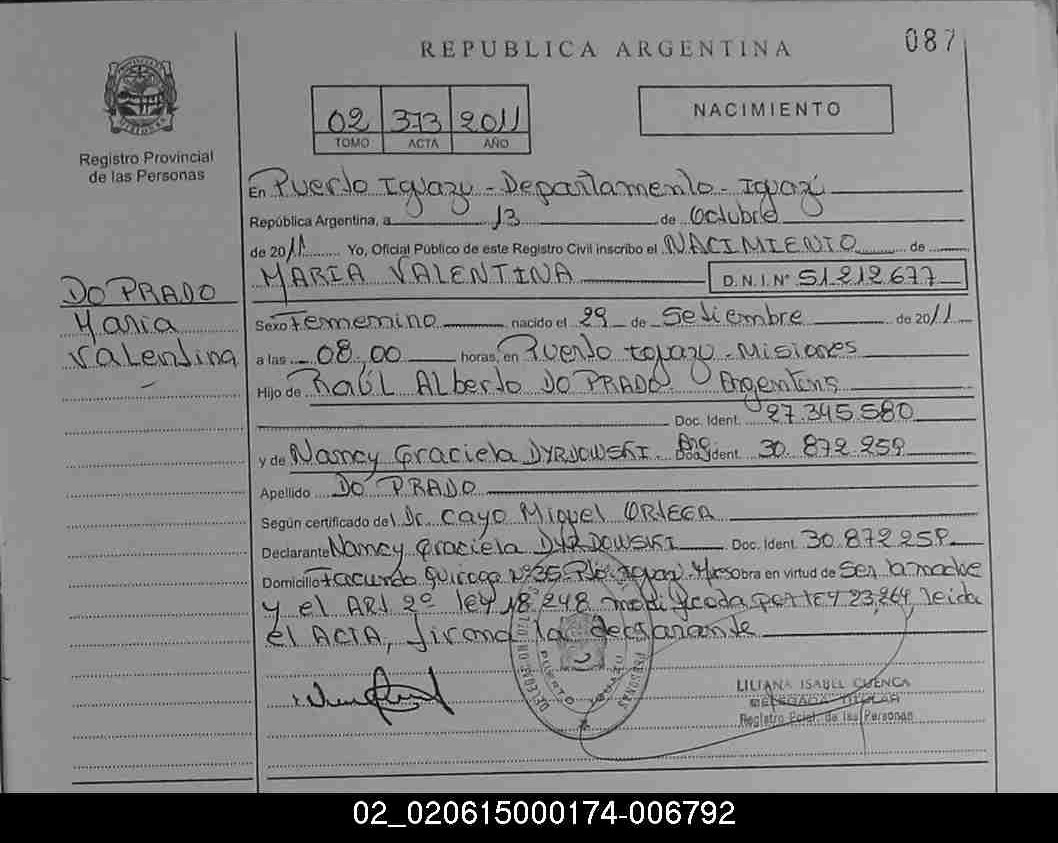 087
REPUBLICA ARGENTINA
NACIMIENTO
02 373 2011
TOMO ACTA AÑO
Registro Provincial
de las Personas
En Puerto Iguazu - Departamento - Iguazú
República Argentina, a 13 de Octubre
de 2011 Yo, Oficial Público de este Registro Civil inscribo el NACIMIENTO de
MARIA VALENTINA D.N.I. Nº 51.212.677
DO PRADO
Maria
Valentina
Sexo Femenino nacido el 29 de Setiembre de 2011
a las 08,00 horas, en Puerto Iguazu - Misiones
Hijo de RaúL ALberto DO PRADO Argentino
Doc. Ident. 27.345.580
y de Nancy Graciela DYRDOWSKI. Arg Doc. Ident. 30.872.259
Apellido DO PRADO
Según certificado del Dr. Cayo Miguel ORTEGA
Declarante Nancy Graciela DYRDOWSKI Doc. Ident. 30.872.259
Domicilio Facundo Quiroga Nº 35 Pto Iguazu obra en virtud de Ser la madre
y el ARt 2º ley 18.248 modificada por LEY 23,264 leida
el ACTA, firma la declarante
DELEG PUERTO IGUAZU PERSONAS
LILIANA ISABEL CUENCA
DELEGADA TITULAR
Registro Pcial. de las Personas
02_020615000174-006792